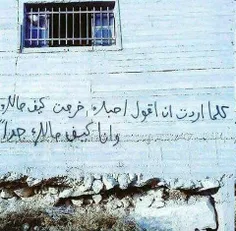 كلما اردت ان اقول احبك, خرجت كيف حالك
وانا كيف حالك جداً